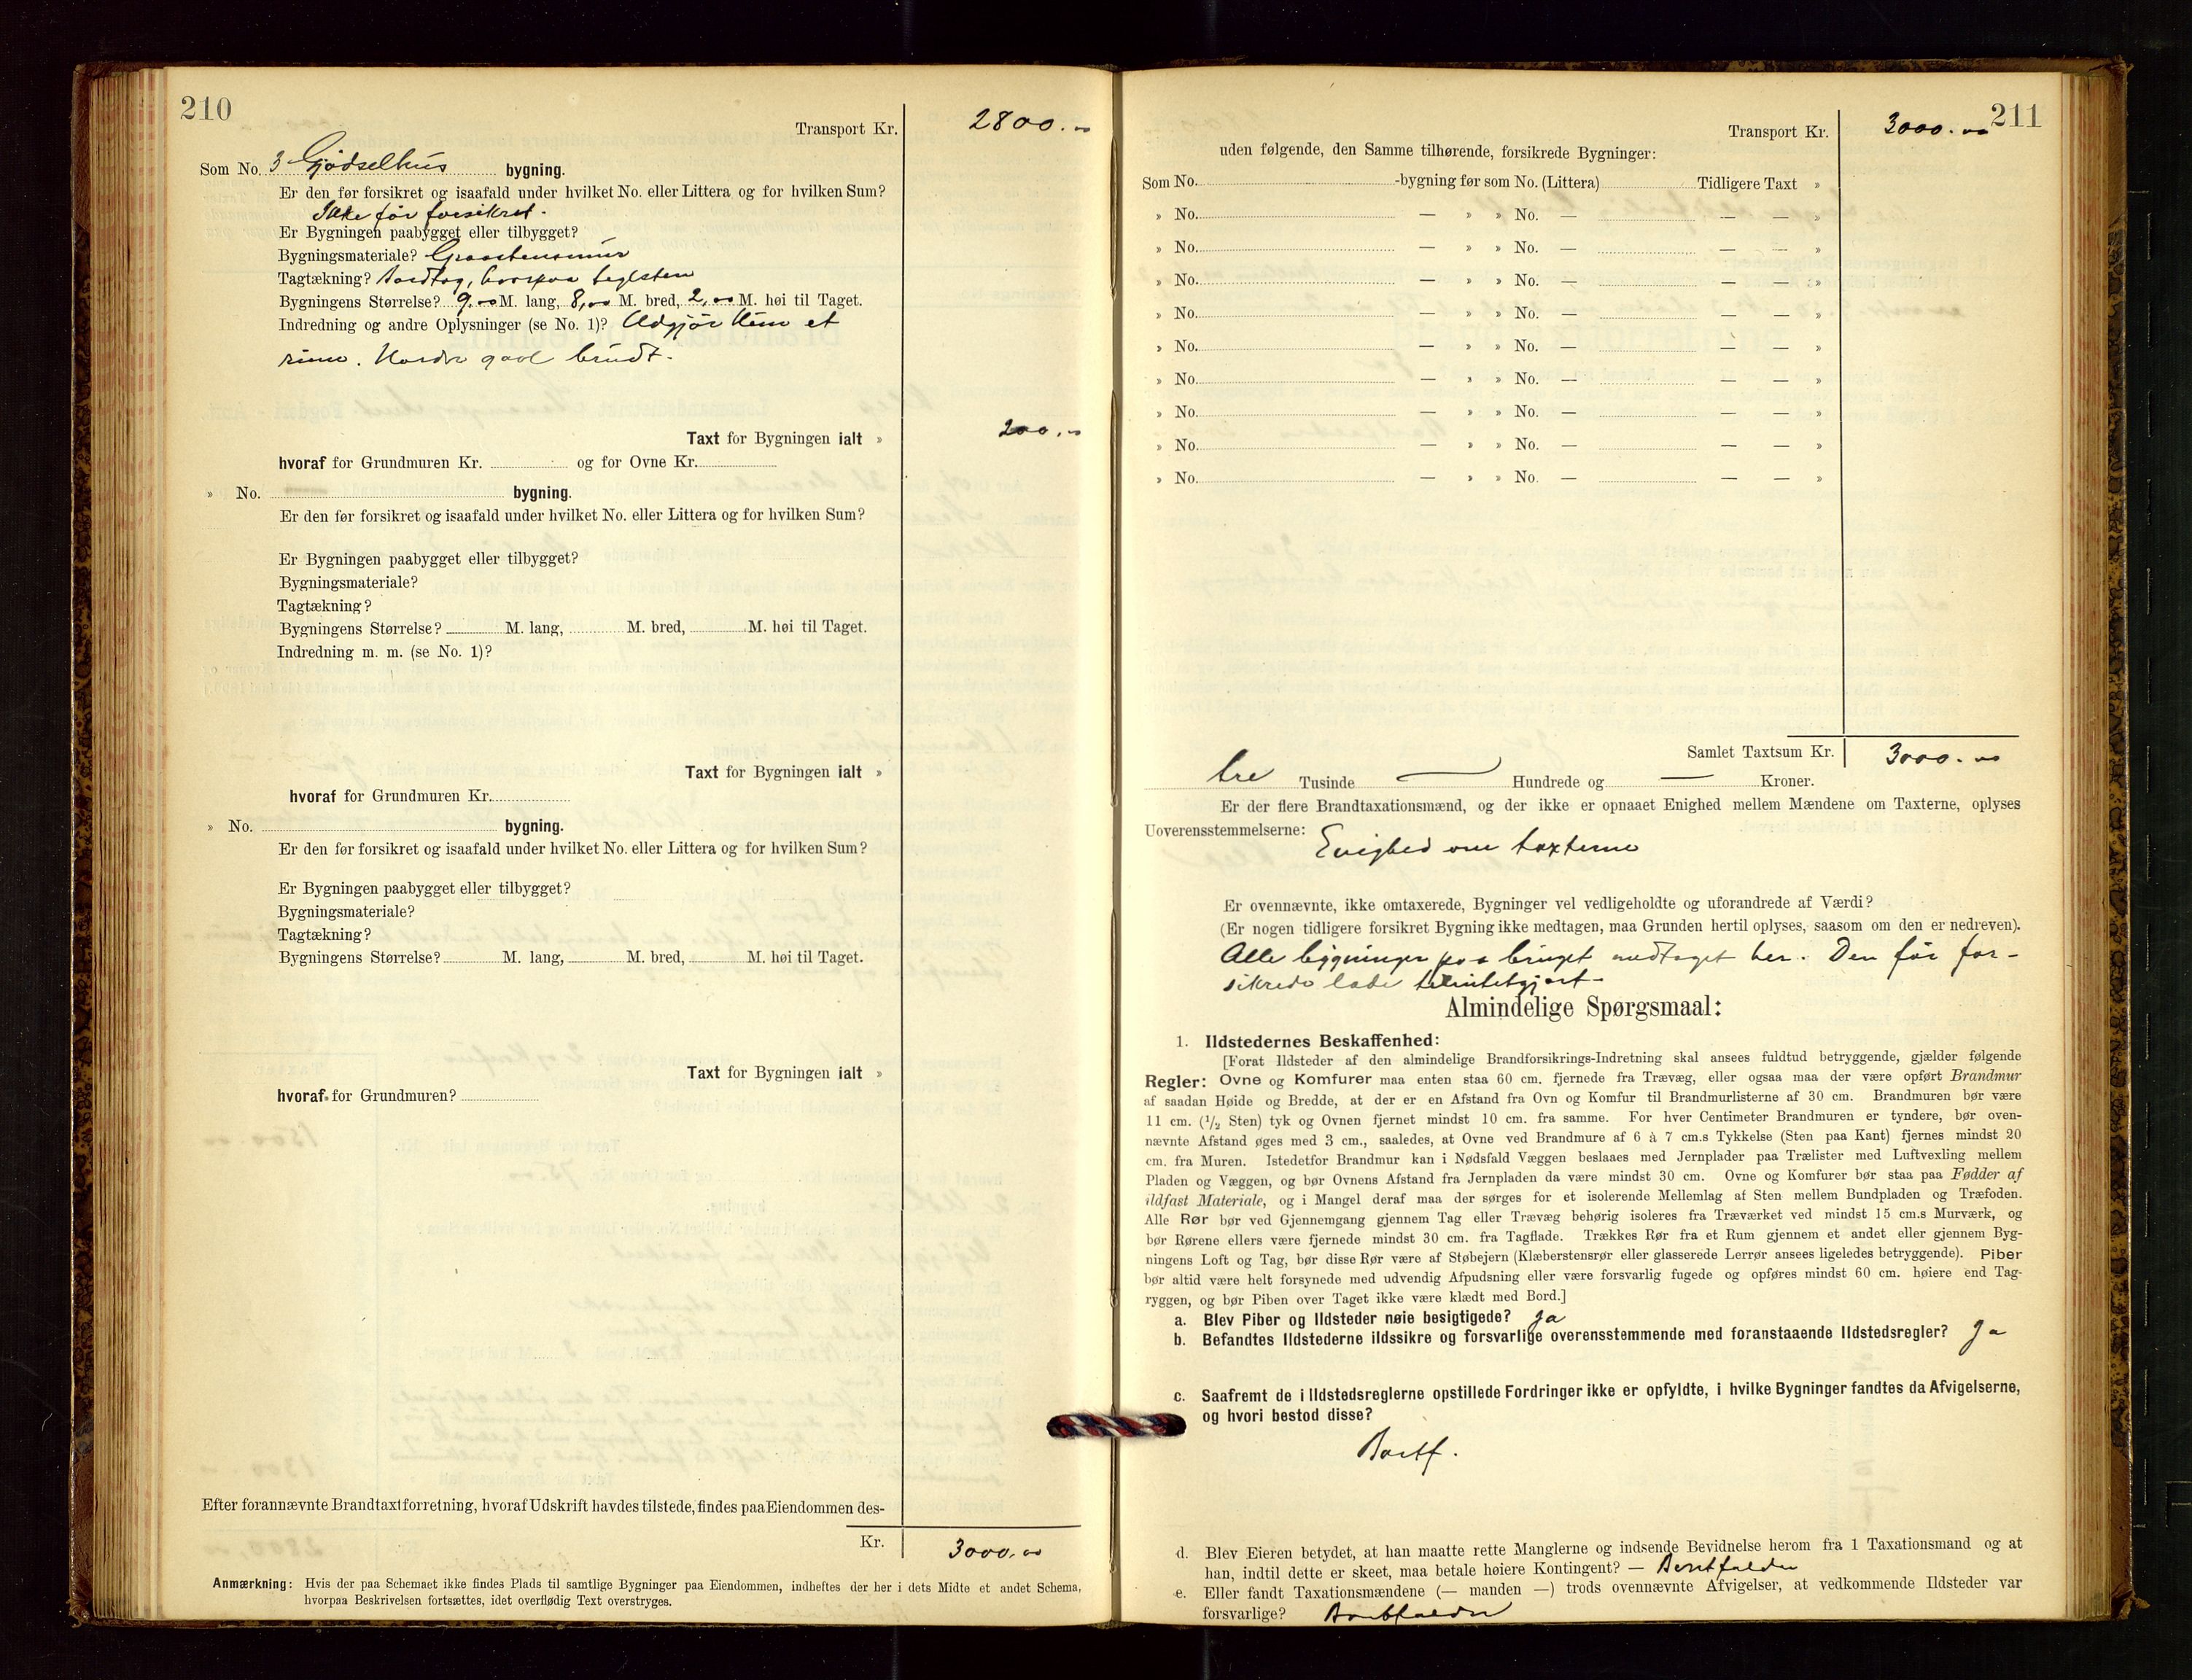 210
Transport Kr. 2800.00
Som No. 3 Gjødselhus bygning.
Er den før forsikret og isaafald under hvilket No. eller Littera og for hvilken Sum?
Ikke før forsikret.
Er Bygningen paabygget eller tilbygget?
Bygningsmateriale? Graastensmur
Tagtækning? Bordtag, hvorpaa teglsten
Bygningens Størrelse? 9.00 M. lang, 8,00 M. bred, 2,00 M. høi til Taget.
Indredning og andre Oplysninger (se No. 1)? Udgjør kun et
rum. Nordre gavl brudt.
Taxt for Bygningen ialt » 200.00
hvoraf for Grundmuren Kr. og for Ovne Kr.
» No. bygning.
Er den før forsikret og isaafald under hvilket No. eller Littera og for hvilken Sum?
Er Bygningen paabygget eller tilbygget?
Bygningsmateriale?
Tagtækning?
Bygningens Størrelse? M. lang, M. bred, M. høi til Taget.
Indredning m. m. (se No. 1)?
Taxt for Bygningen ialt »
hvoraf for Grundmuren Kr.
» No. bygning.
Er den før forsikret og isaafald under hvilket No. eller Littera og for hvilken Sum?
Er Bygningen paabygget eller tilbygget?
Bygningsmateriale?
Tagtækning?
Bygningens Størrelse? M. lang, M. bred, M. høi til Taget.
Taxt for Bygningen ialt »
hvoraf for Grundmuren?
Efter forannævnte Brandtaxtforretning, hvoraf Udskrift havdes tilstede, findes paa Eiendommen des-
Kr. 3000.00
Anmærkning: Hvis der paa Schemaet ikke findes Plads til samtlige Bygninger paa Eiendommen, indheftes der her i dets Midte et andet Schema,
hvorpaa Beskrivelsen fortsættes, idet overflødig Text overstryges.
211
Transport Kr. 3000.00
uden følgende, den Samme tilhørende, forsikrede Bygninger:
Som No. -bygning før som No. (Littera) Tidligere Taxt »
» No. — » » No. — — — »
» No. — » » No. — — — »
» No. — » » No. — — — »
» No. — » » No. — — — »
» No. — » » No. — — — »
» No. — » » No. — — — »
» No. — » » No. — — — »
» No. — » » No. — — — »
» No. — » » No. — — — »
Samlet Taxtsum Kr. 3000.00
tre Tusinde — Hundrede og — Kroner.
Er der flere Brandtaxationsmænd, og der ikke er opnaaet Enighed mellem Mændene om Taxterne, oplyses
Uoverensstemmelserne: Enighed om taxterne
Er ovennævnte, ikke omtaxerede, Bygninger vel vedligeholdte og uforandrede af Værdi?
(Er nogen tidligere forsikret Bygning ikke medtagen, maa Grunden hertil oplyses, saasom om den er nedreven).
Alle bygninger paa bruget medtaget her. Den før for-
sikrede lade tilintetgjort.
Almindelige Spørgsmaal:
1. Ildstedernes Beskaffenhed:
[Forat Ildsteder af den almindelige Brandforsikrings-Indretning skal ansees fuldtud betryggende, gjælder følgende
Regler: Ovne og Komfurer maa enten staa 60 cm. fjernede fra Trævæg, eller ogsaa maa der være opført Brandmur
af saadan Høide og Bredde, at der er en Afstand fra Ovn og Komfur til Brandmurlisterne af 30 cm. Brandmuren bør være
11 cm. (1/2 Sten) tyk og Ovnen fjernet mindst 10 cm. fra samme. For hver Centimeter Brandmuren er tyndere, bør oven-
nævnte Afstand øges med 3 cm., saaledes, at Ovne ved Brandmure af 6 à 7 cm.s Tykkelse (Sten paa Kant) fjernes mindst 20
cm. fra Muren. Istedetfor Brandmur kan i Nødsfald Væggen beslaaes med Jernplader paa Trælister med Luftvexling mellem
Pladen og Væggen, og bør Ovnens Afstand fra Jernpladen da være mindst 30 cm. Ovne og Komfurer bør staa paa Fødder af
ildfast Materiale, og i Mangel deraf maa der sørges for et isolerende Mellemlag af Sten mellem Bundpladen og Træfoden.
Alle Rør bør ved Gjennemgang gjennem Tag eller Trævæg behørig isoleres fra Træværket ved mindst 15 cm.s Murværk, og
bør Rørene ellers være fjernede mindst 30 cm. fra Tagflade. Trækkes Rør fra et Rum gjennem et andet eller gjennem Byg-
ningens Loft og Tag, bør disse Rør være af Støbejern (Klæberstensrør eller glasserede Lerrør ansees ligeledes betryggende). Piber
bør altid være helt forsynede med udvendig Afpudsning eller være forsvarlig fugede og opføres mindst 60 cm. høiere end Tag-
ryggen, og bør Piben over Taget ikke være klædt med Bord.]
a. Blev Piber og Ildsteder nøie besigtigede? Ja
b. Befandtes Ildstederne ildssikre og forsvarlige overensstemmende med foranstaaende Ildstedsregler? Ja
c. Saafremt de i Ildstedsreglerne opstillede Fordringer ikke er opfyldte, i hvilke Bygninger fandtes da Afvigelserne,
og hvori bestod disse?
Bortf.
d. Blev Eieren betydet, at han maatte rette Manglerne og indsende Bevidnelse herom fra 1 Taxationsmand og at
han, indtil dette er skeet, maa betale høiere Kontingent? — Bortfalder
e. Eller fandt Taxationsmændene (— manden —) trods ovennævnte Afvigelser, at vedkommende Ildsteder var
forsvarlige? Bortfalder